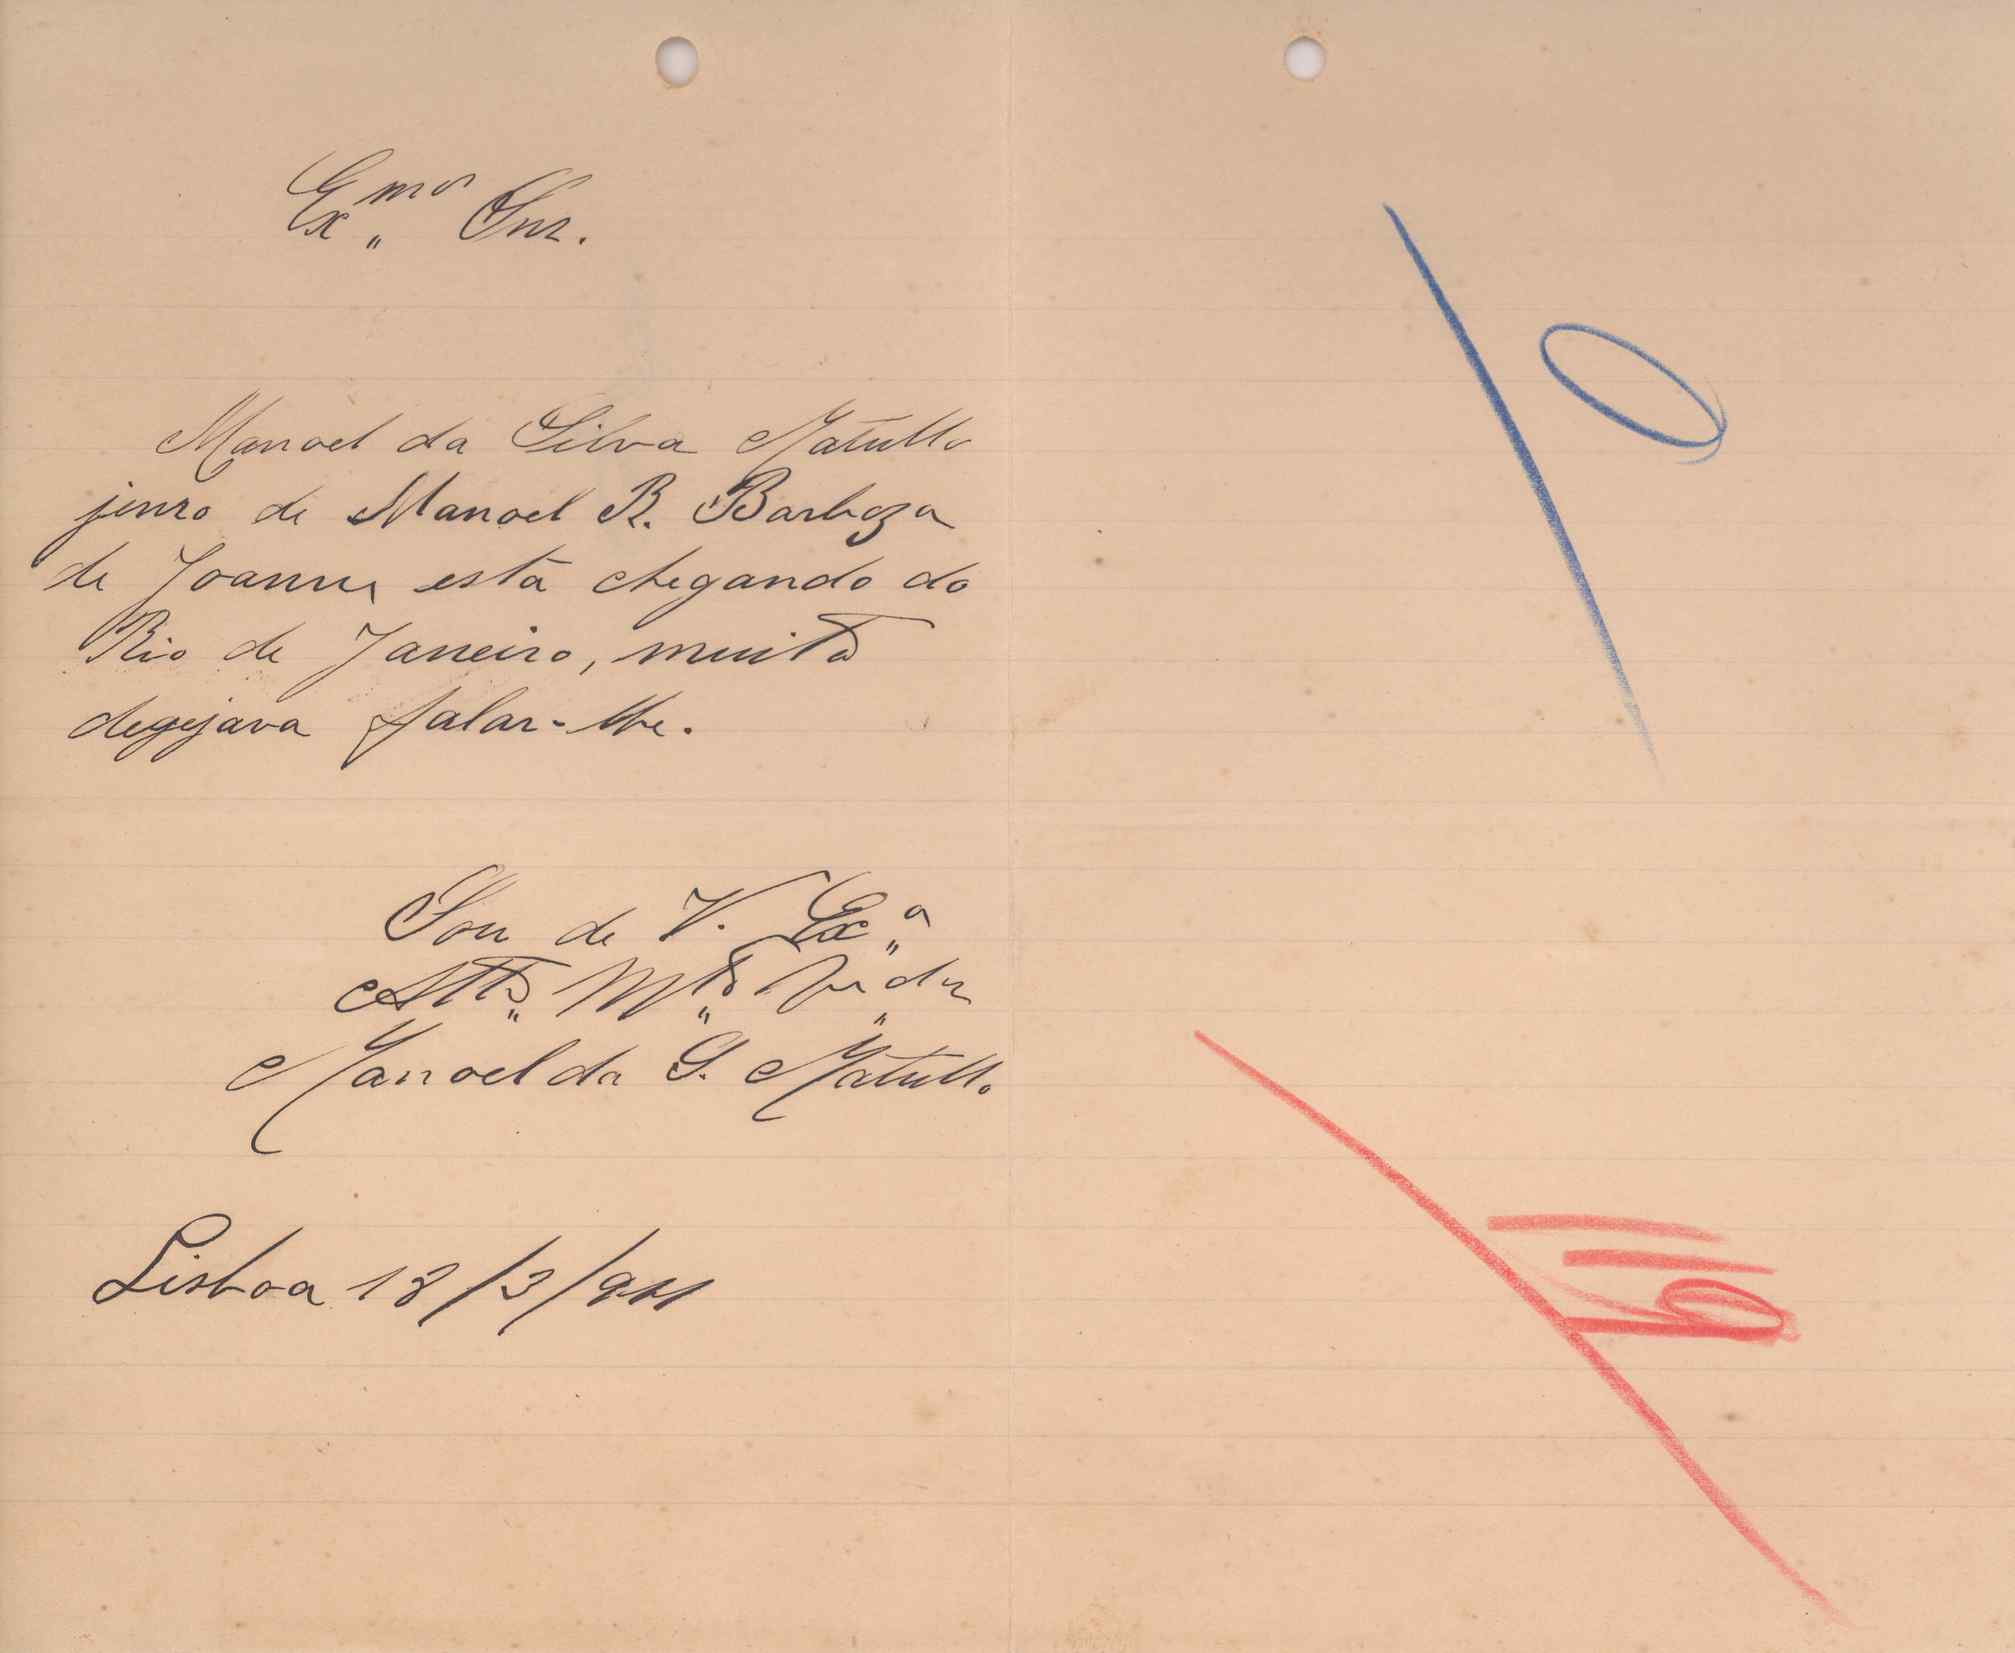 Exmo Snr.
Manoel da Silva Matullo
jenro de Manoel R. Barboza
de Joanne está chegando do
Rio de Janeiro, muito
degejava falar-lhe.
Sou de V. Exa
Atto Mto Vedor
Manoel da S. Matullo
Lisboa 18/3/911